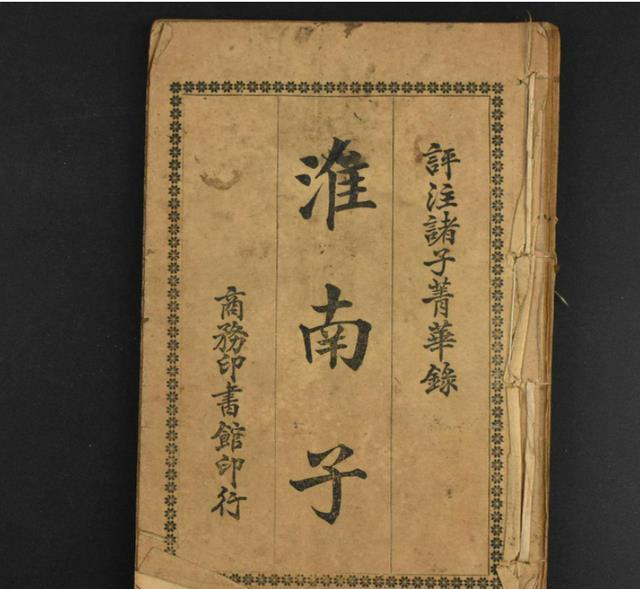 評注諸子菁華錄
淮南子
商務印書館印行